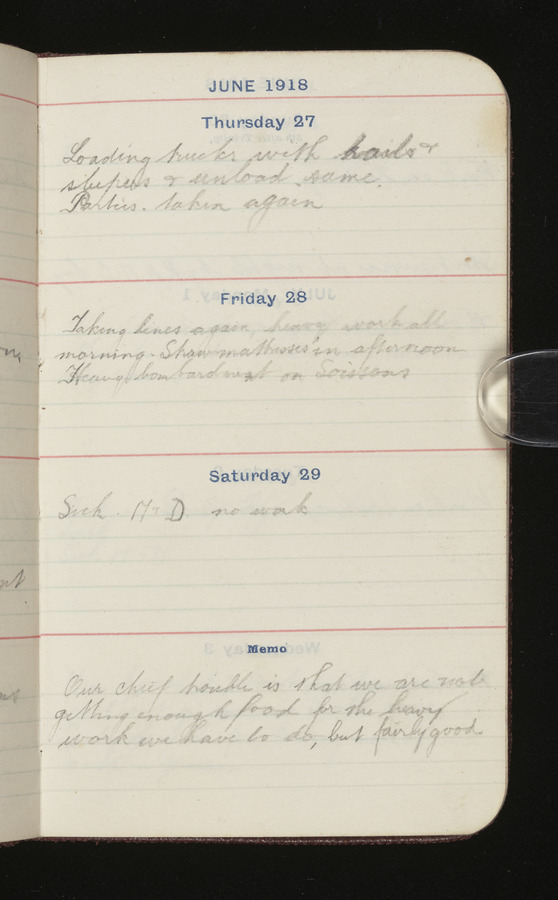 JUNE 1918
Thursday 27
Loading trucks with rails &
sleepers & unload same.
Parties. taken again
Friday 28
Taking lines again, heavy work all
morning. Straw mattresses in afternoon
Heavy bombardment on Soissons
Saturday 29
Sick. M & D no work
Memo
Our chief trouble is that we are not
getting enough food for the heavy
work we have to do, but fairly good.